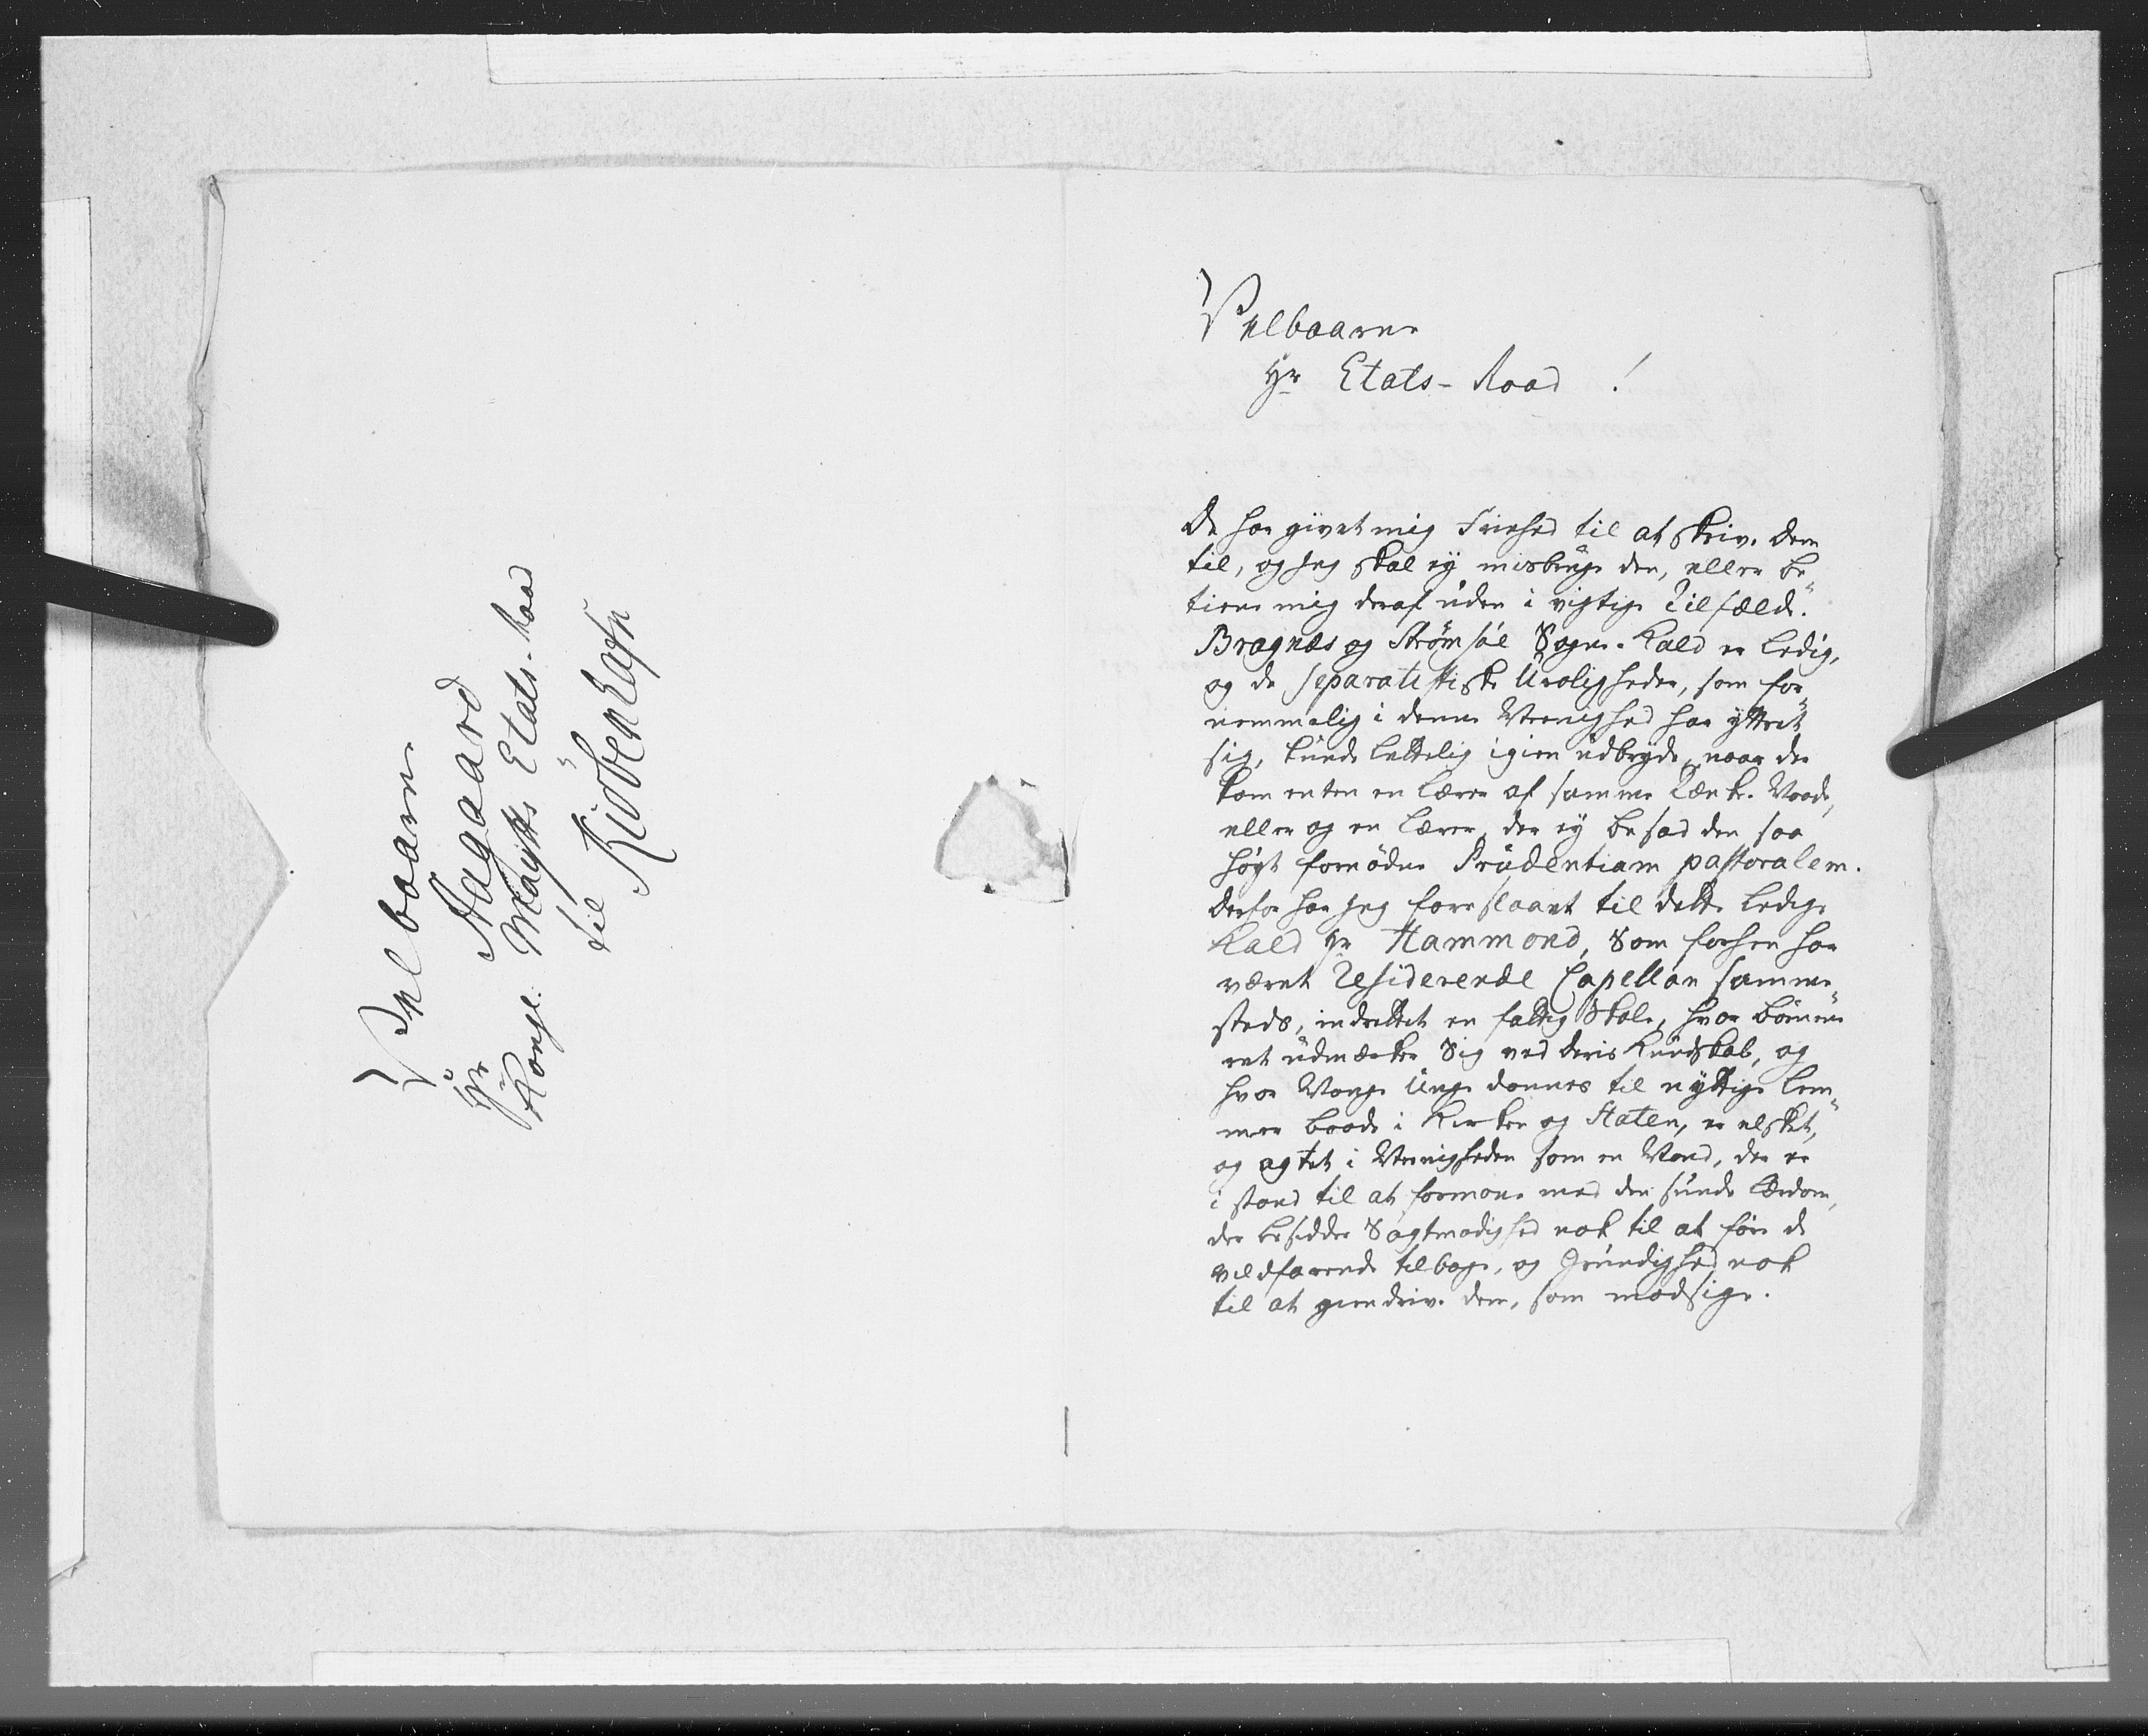 Velbaarne
Hr Aagaard
Kongl. Maysts Etats-Raad
til Kiöbenhafn
Velbaarne
Hr Etats-Raad!
De har givet mig Friehed til at skrive dem
til, og jeg skal ey misbruge den, eller be„
tiene mig deraf uden i vigtige Tilfælde.
Bragnæs og Strømsøe Sogne-Kald er ledig,
og de separatistiske Uroligheder, som for„
nemmelig i denne Meenighed har yttret
sig, kunde lettelig igien udbryde, naar der
kom enten en Lærer af samme Tænke-Maade,
eller og en Lærer, der ey besad den saa
høyt fornødne Prudentiam pastoralem.
Derfor har jeg foreslaaet til dette ledige
Kald Hr Hammond, som forhen har
været Residerende Capellan samme„
steds, indrettet en fattig Skole, hvor Börne„
ne udmærker sig ved deris Kundskab, og
hvor Mange Unge dannes til nyttige Lem„
mer baade i Kirken og Staten, er elsket,
og agtet i Meenigheden som en Mand, der er
i stand til at formane med den sunde Lærdom,
der besidder Sagtmodighed nok til at føre de
vildfarende tilbage, og Grundighed nok
til at giendrive dem, som modsige.